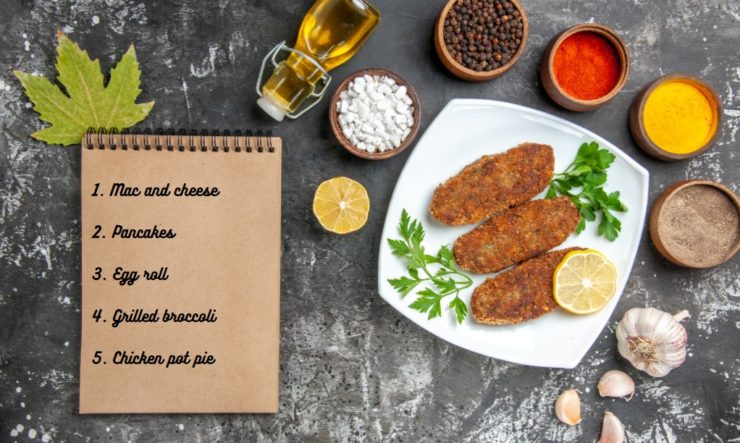 1. Mac and cheese
2. Pancakes
3. Egg roll
4. Grilled broccoli
5. Chicken pot pie